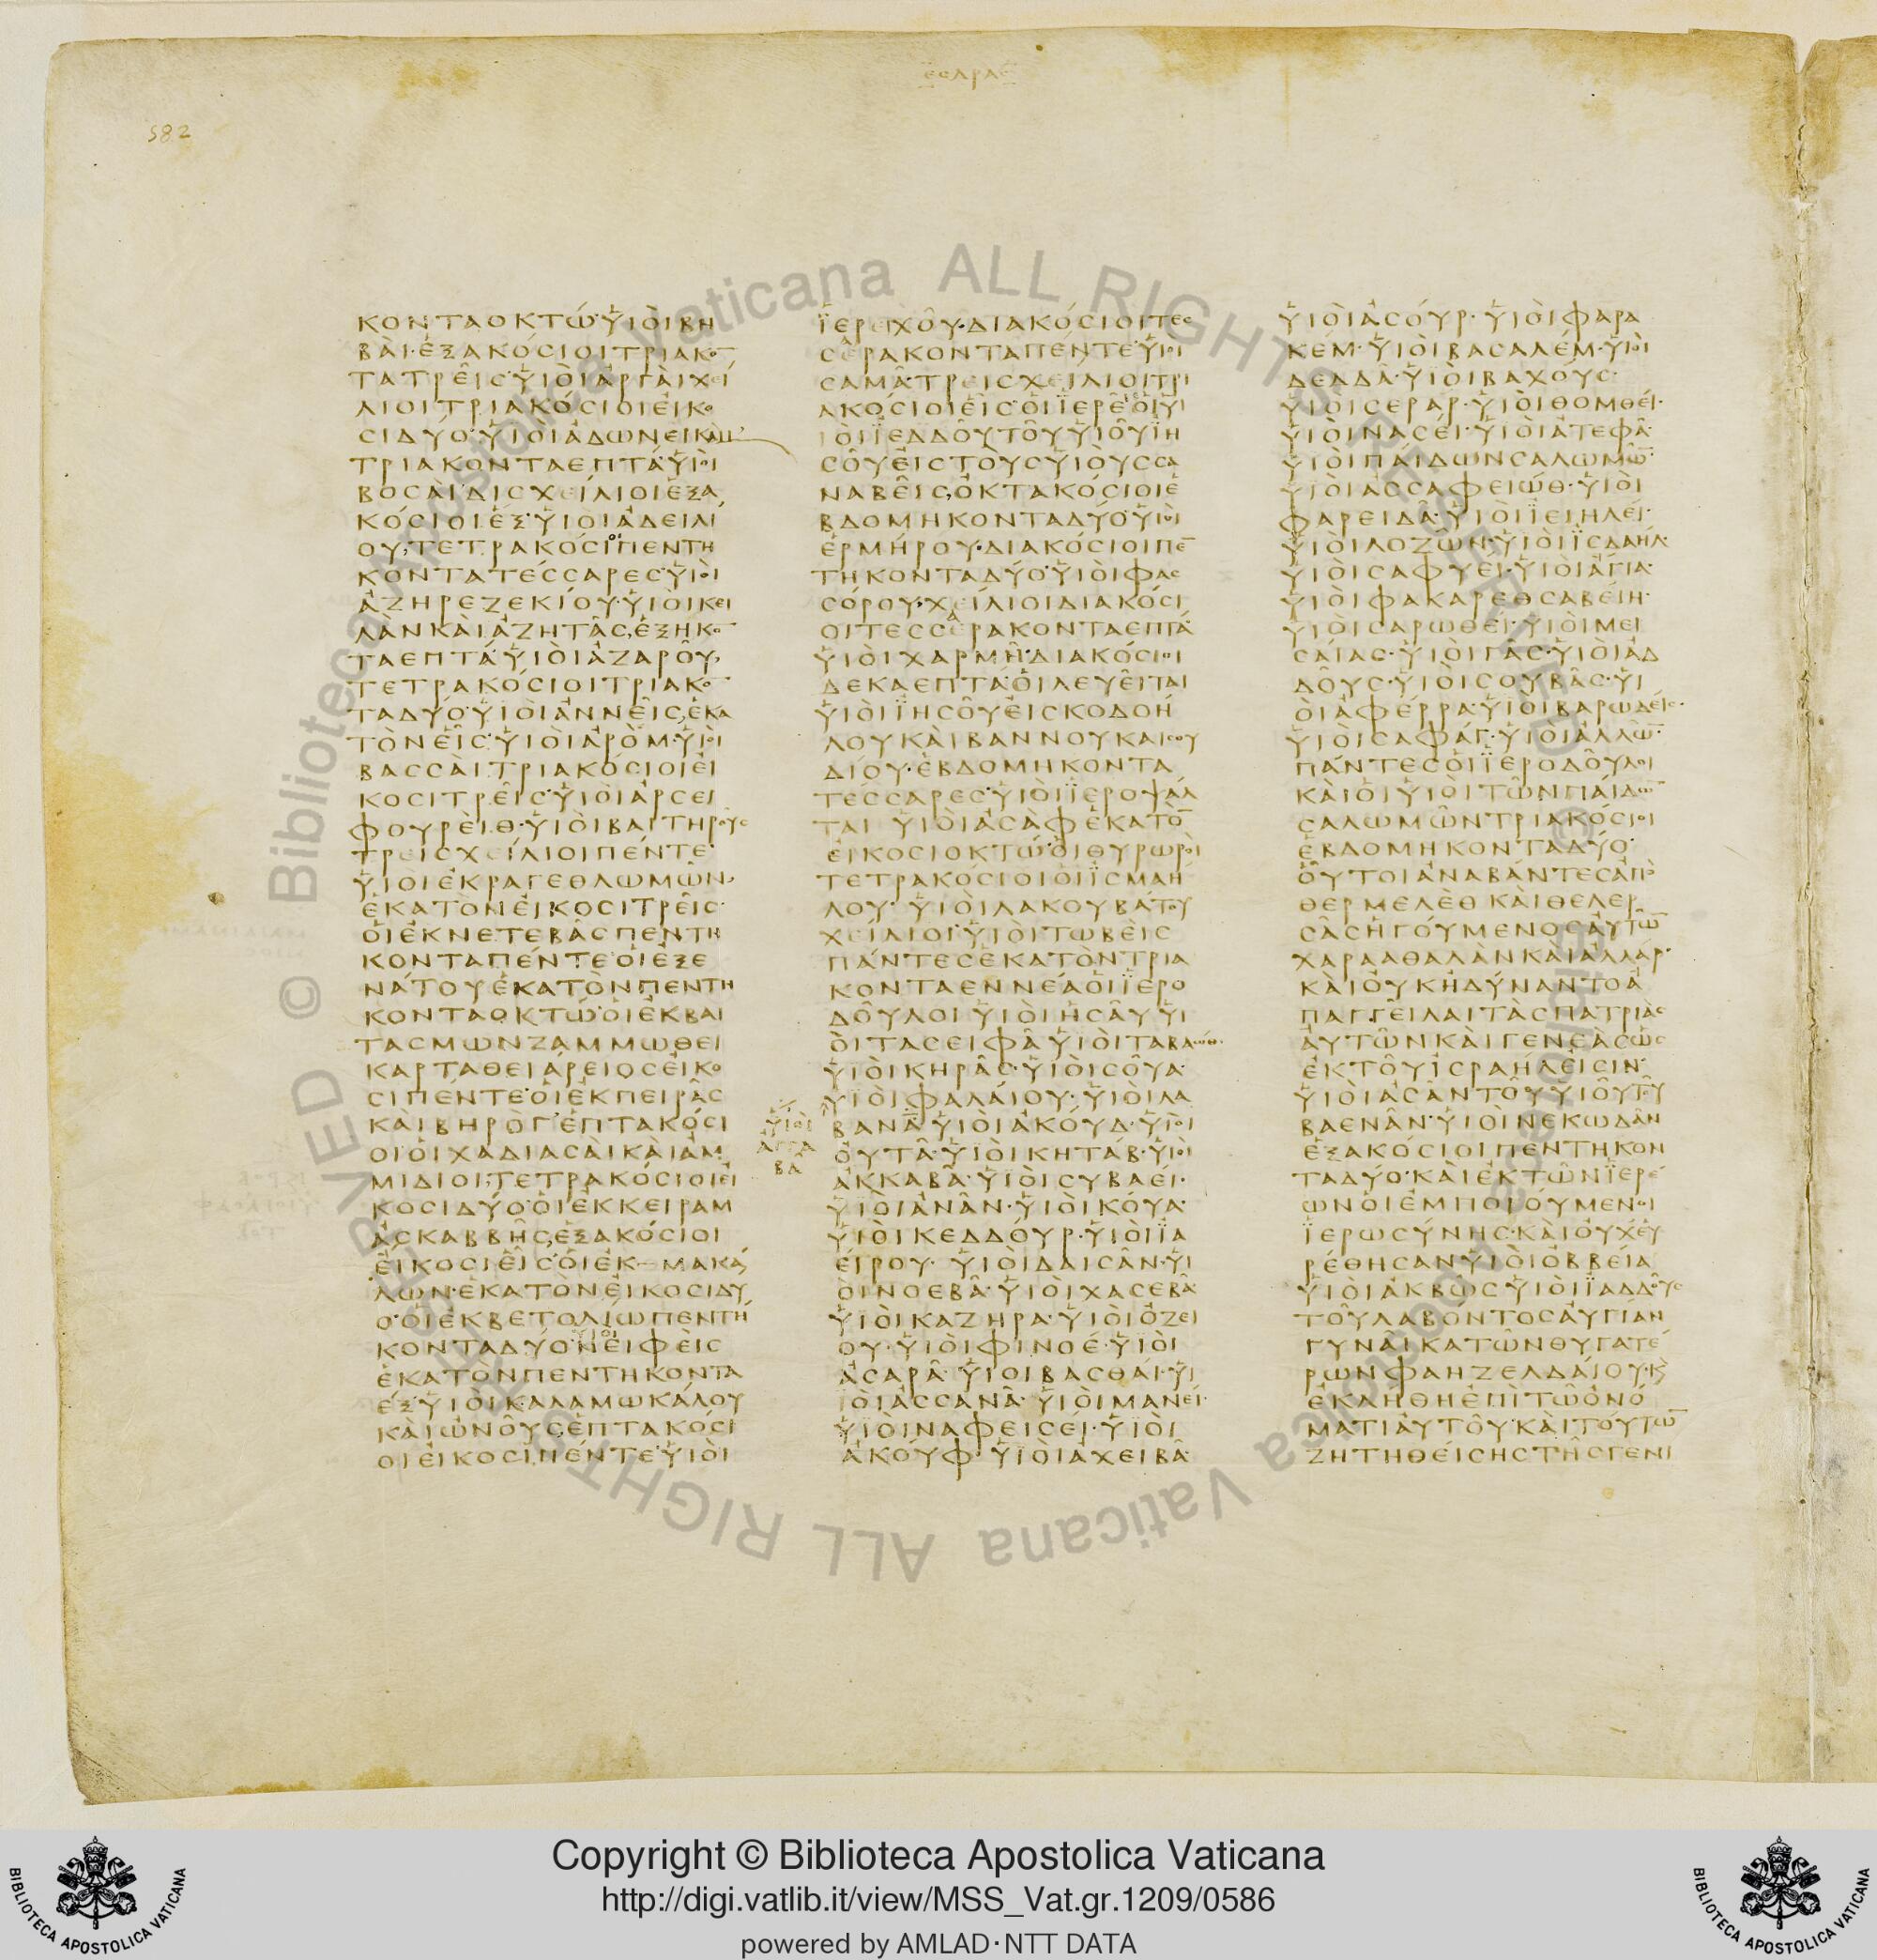 ΕΣΔΡΑΣ
582
ΚΟΝΤΑΟΚΤΩ·ΥΙΟΙΒΗ
ΒΑΙ·ΕΞΑΚΟΣΙΟΙΤΡΙΑΚΟ
ΤΑΤΡΕΙΣ·ΥΙΟΙΑΡΓΑΙΧΕΙ
ΛΙΟΙΤΡΙΑΚΟΣΙΟΙΕΙΚΟ
ΣΙΔΥΟ·ΥΙΟΙΑΔΩΝΕΙΚΑΜ
ΤΡΙΑΚΟΝΤΑΕΠΤΑ·ΥΙΟΙ
ΒΟΣΑΙ·ΔΙΣΧΕΙΛΙΟΙΕΞΑ
ΚΟΣΙΟΙΕΞ·ΥΙΟΙΑΔΕΙΛΙ
ΟΥ,ΤΕΤΡΑΚΟΣΙΟΙΠΕΝΤΗ
ΚΟΝΤΑΤΕΣΣΑΡΕΣ·ΥΙΟΙ
ΑΖΗΡΕΖΕΚΙΟΥ·ΥΙΟΙΚΕΙ
ΛΑΝΚΑΙΑΖΗΤΑΣ,ΕΞΗΚΟ
ΤΑΕΠΤΑ·ΥΙΟΙΑΖΑΡΟΥ,
ΤΕΤΡΑΚΟΣΙΟΙΤΡΙΑΚΟ
ΤΑΔΥΟ·ΥΙΟΙΑΝΝΕΙΣ,ΕΚΑ
ΤΟΝΕΙΣ·ΥΙΟΙΑΡΟΜ·ΥΙΟΙ
ΒΑΣΣΑΙ·ΤΡΙΑΚΟΣΙΟΙΕΙ
ΚΟΣΙΤΡΕΙΣ·ΥΙΟΙΑΡΣΕΙ
ΦΟΥΡΕΙΘ·ΥΙΟΙΒΑΙΤΗΡΟΥΣ
ΤΡΕΙΣΧΕΙΛΙΟΙΠΕΝΤΕ·
ΥΙΟΙΕΚΡΑΓΕΘΛΩΜΩΝ,
ΕΚΑΤΟΝΕΙΚΟΣΙΤΡΕΙΣ·
ΟΙΕΚΝΕΤΕΒΑΣΠΕΝΤΗ
ΚΟΝΤΑΠΕΝΤΕ·ΟΙΕΞΕ
ΝΑΤΟΥΕΚΑΤΟΝΠΕΝΤΗ
ΚΟΝΤΑΟΚΤΩ·ΟΙΕΚΒΑΙ
ΤΑΣΜΩΝΖΑΜΜΩΘΕΙ
ΚΑΡΤΑΘΕΙΑΡΕΙΟΣΕΙΚΟ
ΣΙΠΕΝΤΕ·ΟΙΕΚΠΕΙΡΑΣ
ΚΑΙΒΗΡΟΓ·ΕΠΤΑΚΟΣΙ
ΟΙ·ΟΙΧΑΔΙΑΣΑΙΚΑΙΑΜ
ΜΙΔΙΟΙ·ΤΕΤΡΑΚΟΣΙΟΙΕΙ
ΚΟΣΙΔΥΟ·ΟΙΕΚΚΕΙΡΑΜ
ΑΣΚΑΒΒΗΣ,ΕΞΑΚΟΣΙΟΙ
ΕΙΚΟΣΙΕΙΣ·ΟΙΕΚ ΜΑΚΑ
ΛΩΝ·ΕΚΑΤΟΝΕΙΚΟΣΙΔΥ
Ο·ΟΙΕΚΒΕΤΟΛΙΩΠΕΝΤΗ
ΚΟΝΤΑΔΥΟ·ΥΙΟΙΝΕΙΦΕΙΣ
ΕΚΑΤΟΝΠΕΝΤΗΚΟΝΤΑ
ΕΞ·ΥΙΟΙΚΑΛΑΜΩΚΑΛΟΥ
ΚΑΙΩΝΟΥΣ,ΕΠΤΑΚΟΣΙ
ΟΙΕΙΚΟΣΙΠΕΝΤΕ·ΥΙΟΙ
ΙΕΡΕΙΧΟΥ·ΔΙΑΚΟΣΙΟΙΤΕΣ
ΣΕΡΑΚΟΝΤΑΠΕΝΤΕ·ΥΙΟΙ
ΣΑΜΑ·ΤΡΕΙΣΧΕΙΛΙΟΙΤΡΙ
ΑΚΟΣΙΟΙΕΙΣ·ΟΙΙΕΡΕΙΣΟΙΥΙ
ΙΟΙΙΕΔΔΟΥΤΟΥΥΙΟΥΙΗ
ΣΟΥΕΙΣΤΟΥΣΥΙΟΥΣΣΑ
ΝΑΒΕΙΣ,ΟΚΤΑΚΟΣΙΟΙΕ
ΒΔΟΜΗΚΟΝΤΑΔΥΟ·ΥΙΟΙ
ΕΡΜΗΡΟΥ·ΔΙΑΚΟΣΙΟΙΠΕ
ΤΗΚΟΝΤΑΔΥΟ·ΥΙΟΙΦΑΣ
ΣΟΡΟΥ·ΧΕΙΛΙΟΙΔΙΑΚΟΣΙ
ΟΙΤΕΣΣΕΡΑΚΟΝΤΑΕΠΤΑ
ΥΙΟΙΧΑΡΜΗ·ΔΙΑΚΟΣΙΟΙ
ΔΕΚΑΕΠΤΑ·ΟΙΛΕΥΕΙΤΑΙ
ΥΙΟΙΙΗΣΟΥΕΙΣΚΟΔΟΗ
ΛΟΥΚΑΙΒΑΝΝΟΥΚΑΙΣΟΥ
ΔΙΟΥ·ΕΒΔΟΜΗΚΟΝΤΑ
ΤΕΣΣΑΡΕΣ·ΥΙΟΙΙΕΡΟΨΑΛ
ΤΑΙ ΥΙΟΙΑΣΑΦΕΚΑΤΟ
ΕΙΚΟΣΙΟΚΤΩ·ΟΙΘΥΡΩΡΟΙ
ΤΕΤΡΑΚΟΣΙΟΙΟΙΙΣΜΑΗ
ΛΟΥ· ΥΙΟΙΛΑΚΟΥΒΑΤΟΥ
ΧΕΙΛΙΟΙ·ΥΙΟΙΤΩΒΕΙΣ
ΠΑΝΤΕΣΕΚΑΤΟΝΤΡΙΑ
ΚΟΝΤΑΕΝΝΕΑΟΙΙΕΡΟ
ΔΟΥΛΟΙ ΥΙΟΙΗΣΑΥ ΥΙ
ΟΙΤΑΣΕΙΦΑ ΥΙΟΙΤΑΒΑΩΘ·
ΥΙΟΙΚΗΡΑΣ·ΥΙΟΙΣΟΥΑ·
ΥΙΟΙΦΑΛΑΙΟΥ·ΥΙΟΙΛΑ
ΥΙΟΙ
ΑΓΓΑ
ΒΑ
ΒΑΝΑ ΥΙΟΙΑΚΟΥΔ·ΥΙΟΙ
ΟΥΤΑ·ΥΙΟΙΚΗΤΑΒ·ΥΙΟΙ
ΑΚΚΑΒΑ·ΥΙΟΙΣΥΒΑΕΙ·
ΥΙΟΙΑΝΑΝ·ΥΙΟΙΚΟΥΑ·
ΥΙΟΙΚΕΔΔΟΥΡ·ΥΙΟΙΙΑ
ΕΙΡΟΥ· ΥΙΟΙΔΑΙΣΑΝ·ΥΙ
ΟΙΝΟΕΒΑ·ΥΙΟΙΧΑΣΕΒΑ·
ΥΙΟΙΚΑΖΗΡΑ·ΥΙΟΙΟΖΕΙ
ΟΥ·ΥΙΟΙΦΙΝΟΕ·ΥΙΟΙ
ΑΣΑΡΑ·ΥΙΟΙΒΑΣΘΑΙ·ΥΙ
ΙΟΙΑΣΣΑΝΑ·ΥΙΟΙΜΑΝΕΙ·
ΥΙΟΙΝΑΦΕΙΣΕΙ·ΥΙΟΙ
ΑΚΟΥΦ·ΥΙΟΙΑΧΕΙΒΑ·
ΥΙΟΙΑΣΟΥΡ·ΥΙΟΙΦΑΡΑ
ΚΕΜ·ΥΙΟΙΒΑΣΑΛΕΜ·ΥΙΟΙ
ΔΕΔΔΑ·ΥΙΟΙΒΑΧΟΥΣ·
ΥΙΟΙΣΕΡΑΡ·ΥΙΟΙΘΟΜΘΕΙ·
ΥΙΟΙΝΑΣΕΙ·ΥΙΟΙΑΤΕΦΑ·
ΥΙΟΙΠΑΙΔΩΝΣΑΛΩΜΩ·
ΥΙΟΙΑΣΣΑΦΕΙΩΘ·ΥΙΟΙ
ΦΑΡΕΙΔΑ·ΥΙΟΙΙΕΙΗΛΕΙ·
ΥΙΟΙΛΟΖΩΝ·ΥΙΟΙΙΣΔΑΗΛ·
ΥΙΟΙΣΑΦΥΕΙ·ΥΙΟΙΑΓΙΑ·
ΥΙΟΙΦΑΚΑΡΕΘΣΑΒΕΙΗ·
ΥΙΟΙΣΑΡΩΘΕΙ·ΥΙΟΙΜΕΙ
ΣΑΙΑΣ·ΥΙΟΙΓΑΣ·ΥΙΟΙΑΔ
ΔΟΥΣ·ΥΙΟΙΣΟΥΒΑΣ·ΥΙ
ΟΙΑΦΕΡΡΑ·ΥΙΟΙΒΑΡΩΔΕΙΣ·
ΥΙΟΙΣΑΦΑΓ·ΥΙΟΙΑΛΛΩ·
ΠΑΝΤΕΣΟΙΙΕΡΟΔΟΥΛΟΙ
ΚΑΙΟΙΥΙΟΙΤΩΝΠΑΙΔΩ
ΣΑΛΩΜΩΝΤΡΙΑΚΟΣΙΟΙ
ΕΒΔΟΜΗΚΟΝΤΑΔΥΟ·
ΟΥΤΟΙΑΝΑΒΑΝΤΕΣΑΠΟ
ΘΕΡΜΕΛΕΘ ΚΑΙΘΕΛΕΡ
ΣΑΣΗΓΟΥΜΕΝΟΣΑΥΤΩ
ΧΑΡΑΑΘΑΛΑΝΚΑΙΑΛΛΑΡ·
ΚΑΙΟΥΚΗΔΥΝΑΝΤΟΑ
ΠΑΓΓΕΙΛΑΙΤΑΣΠΑΤΡΙΑΣ
ΑΥΤΩΝΚΑΙΓΕΝΕΑΣΩΣ
ΕΚΤΟΥΙΣΡΑΗΛΕΙΣΙΝ·
ΥΙΟΙΑΣΑΝΤΟΥΥΙΟΥΤΟΥ
ΒΑΕΝΑΝ·ΥΙΟΙΝΕΚΩΔΑΝ
ΕΞΑΚΟΣΙΟΙΠΕΝΤΗΚΟΝ
ΤΑΔΥΟ·ΚΑΙΕΚΤΩΝΙΕΡΕ
ΩΝΟΙΕΜΠΟΙΟΥΜΕΝΟΙ
ΙΕΡΩΣΥΝΗΣ·ΚΑΙΟΥΧΕΥ
ΡΕΘΗΣΑΝΥΙΟΙΟΒΒΕΙΑ
ΥΙΟΙΑΚΒΩΣ ΥΙΟΙΙΑΔΔΟΥΣ
ΤΟΥΛΑΒΟΝΤΟΣΑΥΓΙΑΝ
ΓΥΝΑΙΚΑΤΩΝΘΥΓΑΤΕ
ΡΩΝΦΑΗΖΕΛΔΑΙΟΥ·Κ
ΕΚΛΗΘΗΕΠΙΤΩΟΝΟ
ΜΑΤΙΑΥΤΟΥ·ΚΑΙΤΟΥΤΩ
ΖΗΤΗΘΕΙΣΗΣΤΗΣΓΕΝΙ
Copyright © Biblioteca Apostolica Vaticana
http://digi.vatlib.it/view/MSS_Vat.gr.1209/0586
powered by AMLAD·NTT DATA
BIBLIOTECA APOSTOLICA VATICANA
BIBLIOTECA APOSTOLICA VATICANA
© Biblioteca Apostolica Vaticana ALL RIGHTS RESERVED
© Biblioteca Apostolica Vaticana ALL RIGHTS RESERVED